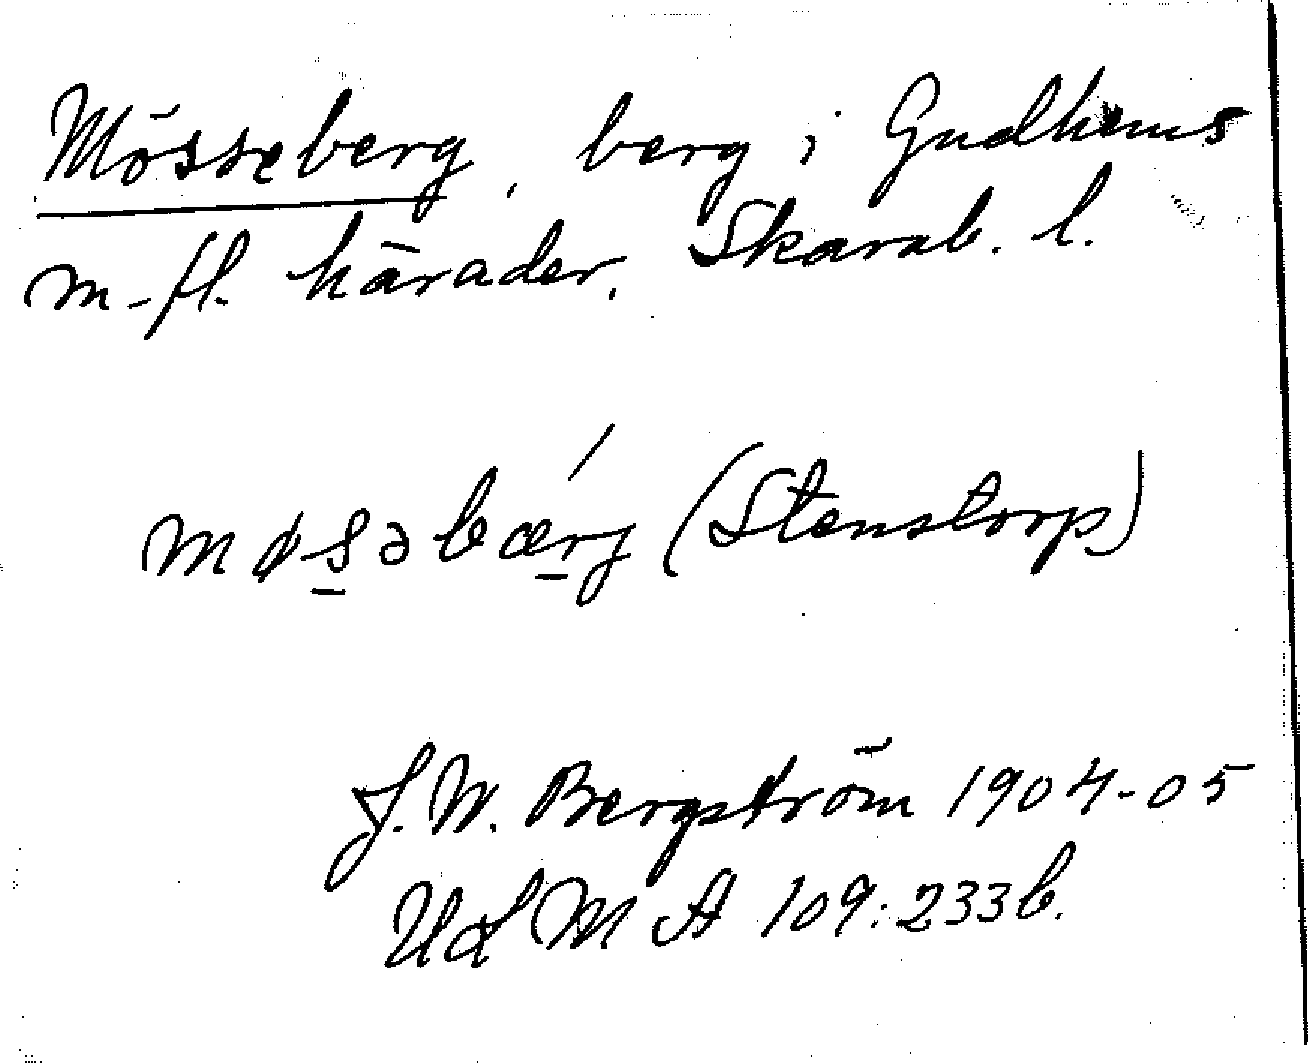 Mösseberg, berg i Gudhems
m. fl. härader, Skarab. l.
møs̲əbær̲j ́ (Stenstorp)
J. W. Bergström 1904-05
ULMA 109:233b.